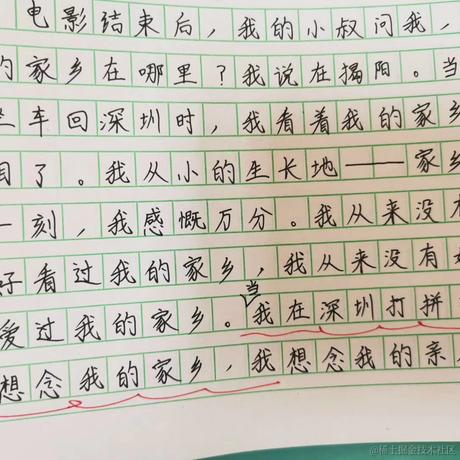 电影结束后，我的小叔问我，
的家乡在哪里？我说在揭阳。当
坐车回深圳时，我看着我的家乡
了。我从小的生长地——家乡
一刻，我感慨万分。我从来没有
好看过我的家乡，我从来没有好
爱过我的家乡。当我在深圳打拼
想念我的家乡，我想念我的亲人
@稀土掘金技术社区